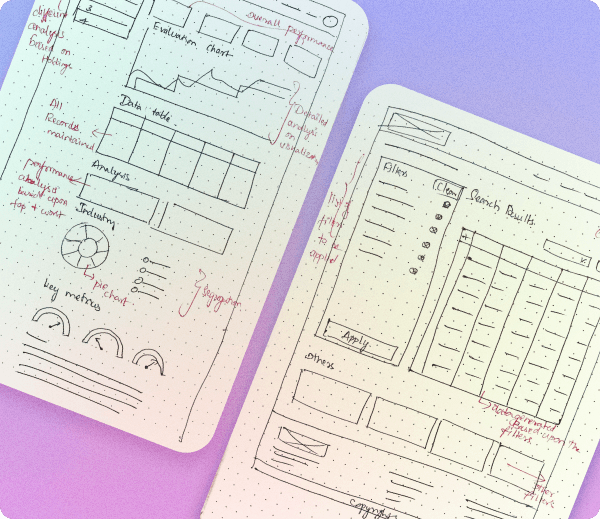 different
analysis
based on
Holdings
Overall performance
Evaluation chart
Detailed
analysis
on
Data table
All
Records
maintained
Analysis
performance
analysis
based upon
top + worst
Industry
pie
chart
Segregation
Key metrics
Filters
Clear
Search Results
list of
filters
to be
applied
Apply
Others
Data generated
Based upon the
filters
Other
filters
Copyright